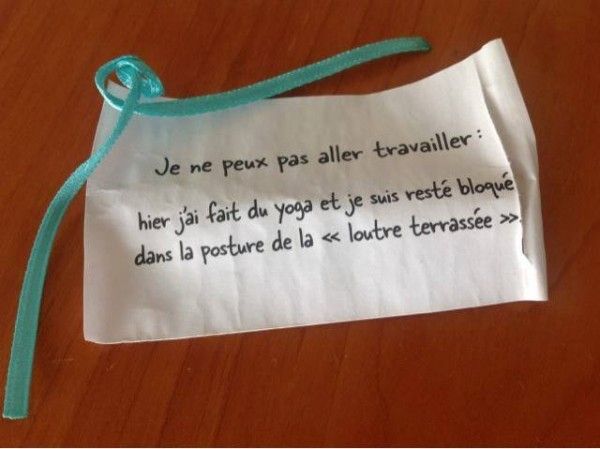 Je ne peux pas aller travailler :
hier j'ai fait du yoga et je suis resté bloqué
dans la posture de la « loutre terrassée ».